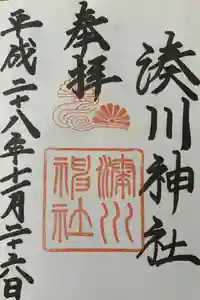 奉拝
湊川神社
湊川神社
平成二十八年十一月二十六日